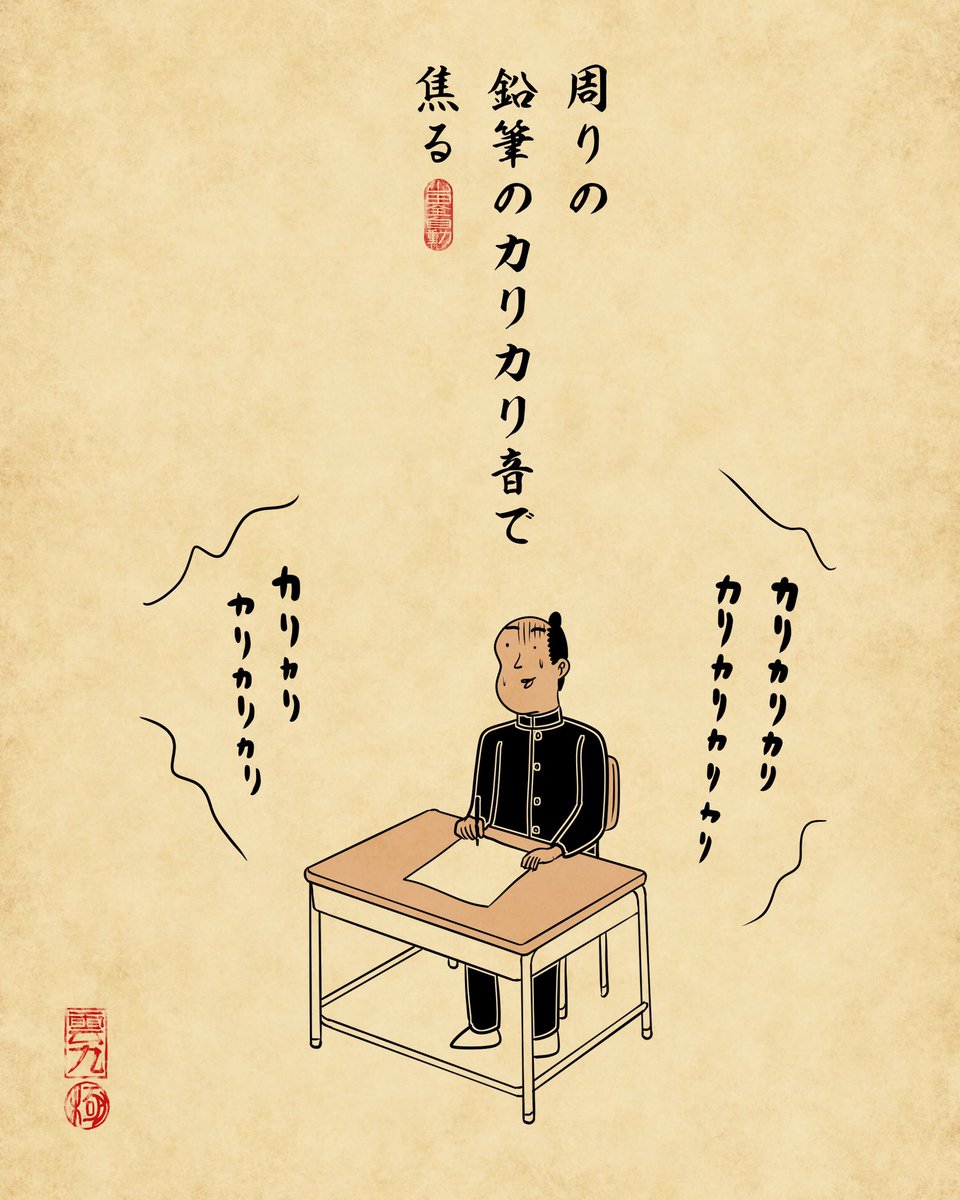 周りの
鉛筆のカリカリ音で
焦る
山田全自動
カリカリカリ
カリカリカリカリ
カリカリ
カリカリカリ
極